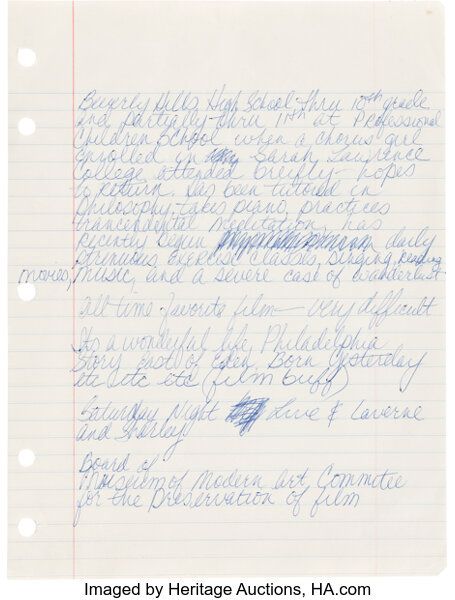 Beverly Hills High School - thru 10th grade
and partially thru 11th at Professional
Children School when a chorus girl
enrolled in Sarah Lawrence
College attended breifly - hopes
to return. Has been tutored in
philosophy takes piano, practices
trancendental meditation, has
recently begun daily
strenuous exercise classes, singing, reading,
movies, music, and a severe case of wanderlust
all time favorite film - very difficult
Its a wonderful life, Philadelphia
Story East of Eden, Born Yesterday
etc etc etc (film buff)
Saturday Night Live & Laverne
and Shirley
Board of
Museum of Modern art, Commitee
for the Preservation of film
Imaged by Heritage Auctions, HA.com